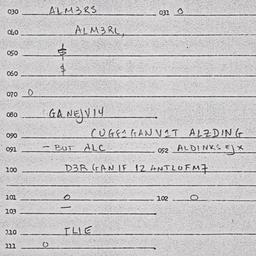 030 ALM3RS 031 0
040 ALM3RL,
050 $
060 $
070 0
080 GANEJV14
090 CUGE1GANV1T ALZDING
091 - BUT ALC 052 ALDINKS EJX
100 D3R GANIF 12 ANTLOFM7
101 0 102 0
103 —
110 TLIE
111 0